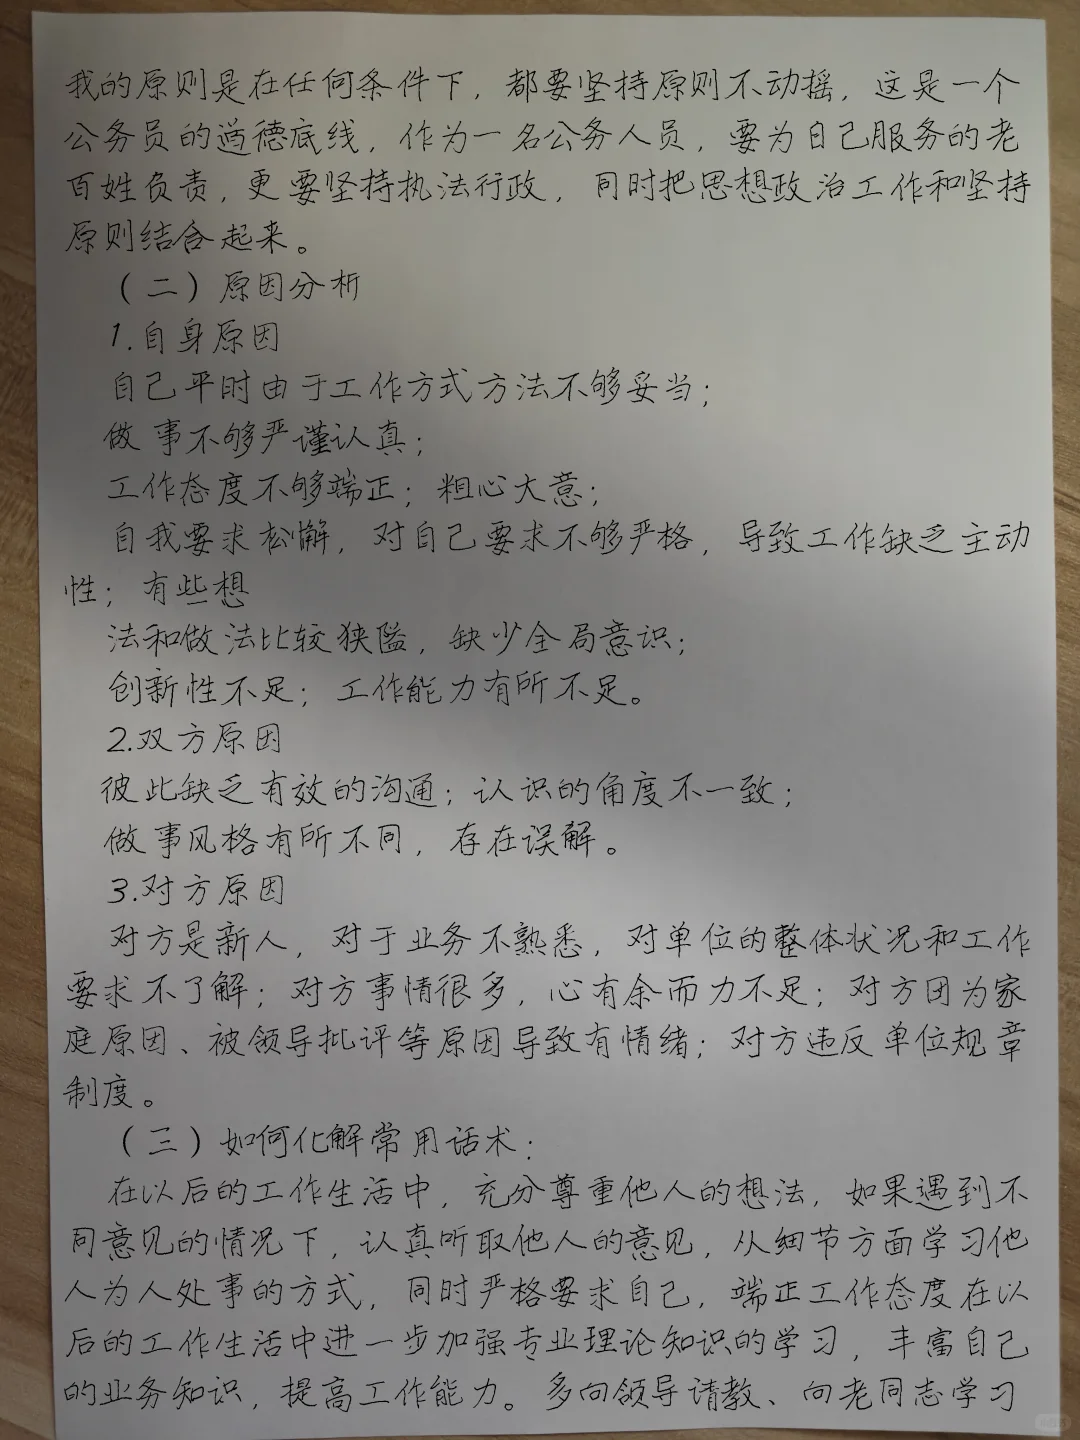 我的原则是在任何条件下，都要坚持原则不动摇，这是一个
公务员的道德底线，作为一名公务人员，要为自己服务的老
百姓负责，更要坚持执法行政，同时把思想政治工作和坚持
原则结合起来。
（二）原因分析
1.自身原因
自己平时由于工作方式方法不够妥当；
做事不够严谨认真；
工作态度不够端正；粗心大意；
自我要求松懈，对自己要求不够严格，导致工作缺乏主动
性；有些想
法和做法比较狭隘，缺少全局意识；
创新性不足；工作能力有所不足。
2.双方原因
彼此缺乏有效的沟通；认识的角度不一致；
做事风格有所不同，存在误解。
3.对方原因
对方是新人，对于业务不熟悉，对单位的整体状况和工作
要求不了解；对方事情很多，心有余而力不足；对方团为家
庭原因、被领导批评等原因导致有情绪；对方违反单位规章
制度。
（三）如何化解常用话术：
在以后的工作生活中，充分尊重他人的想法，如果遇到不
同意见的情况下，认真听取他人的意见，从细节方面学习他
人为人处事的方式，同时严格要求自己，端正工作态度在以
后的工作生活中进一步加强专业理论知识的学习，丰富自己
的业务知识，提高工作能力。多向领导请教、向老同志学习